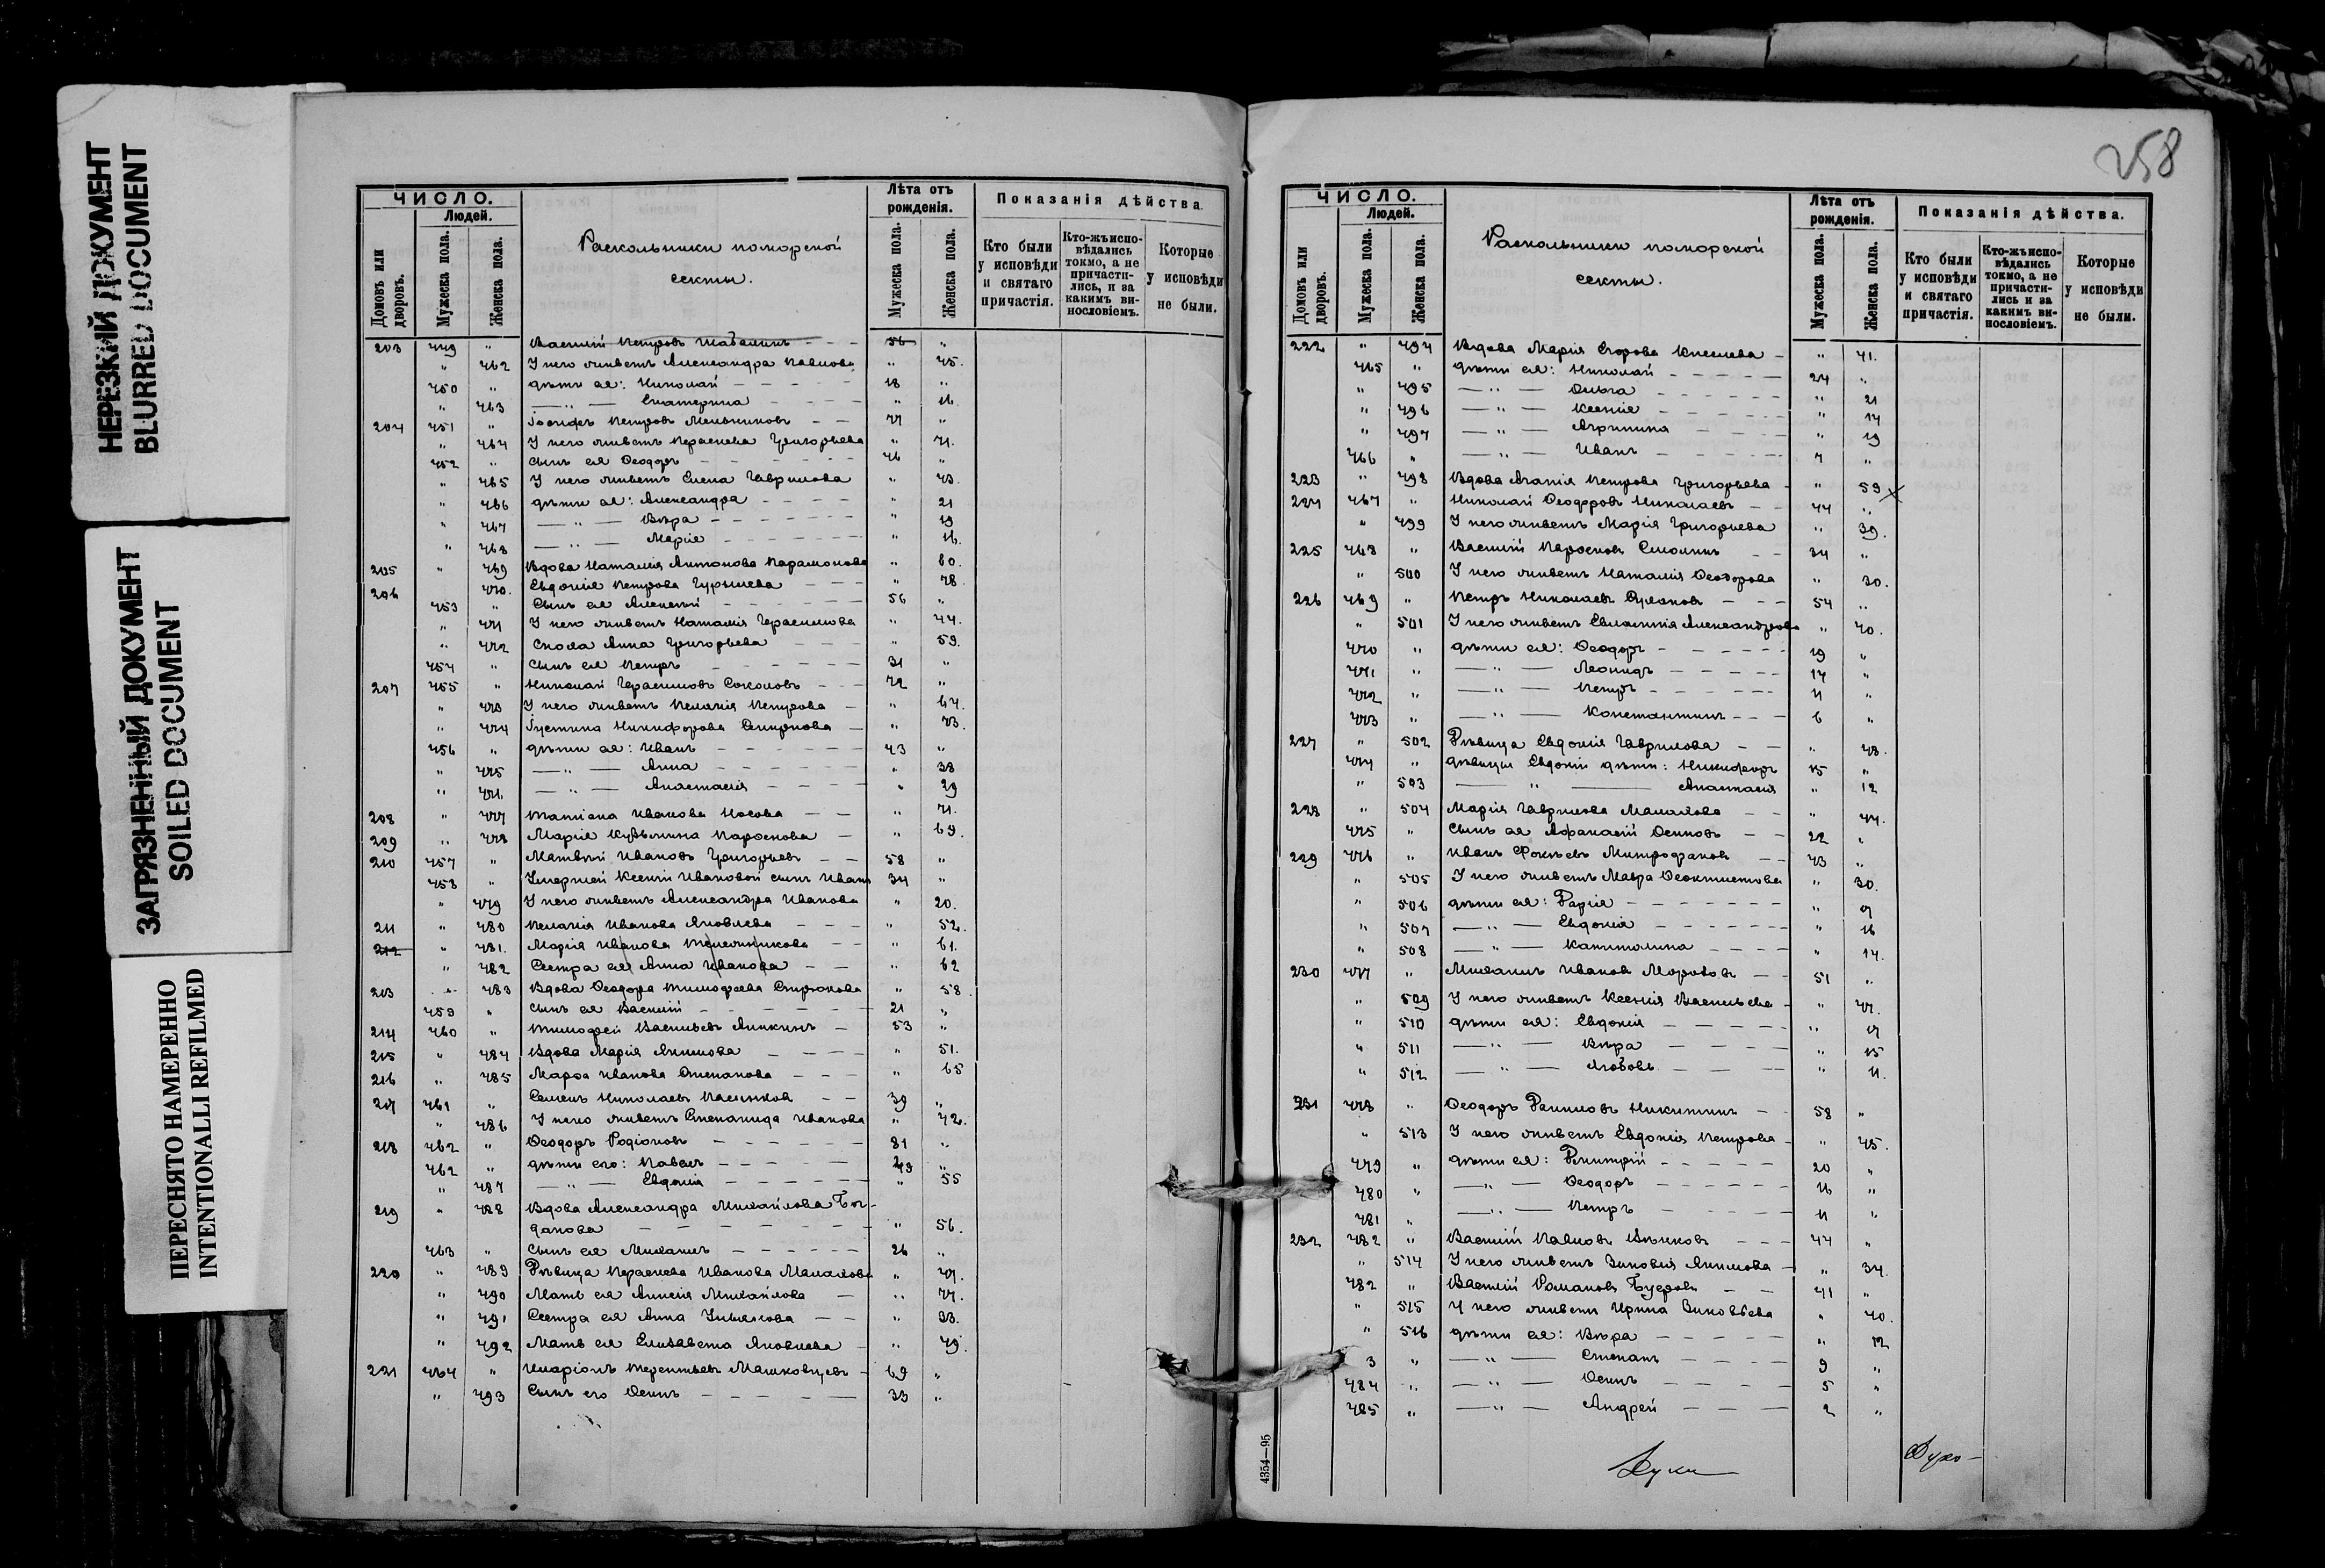 НЕРЕЗКИЙ ДОКУМЕНТ
BLURRED DOCUMENT
ЗАГРЯЗНЕННЫЙ ДОКУМЕНТ
SOILED DOCUMENT
ПЕРЕСНЯТО НАМЕРЕННО
INTENTIONALLI REFILMED
ЧИСЛО.
Людей.
Домовъ или дворовъ.
Мужеска пола.
Женска пола.
Раскольники поморской
секты.
Лѣта отъ рожденія.
Мужеска пола.
Женска пола.
Показанія дѣйства.
Кто были у исповѣди и святаго причастія.
Кто-жъ исповѣдались токмо, а не причастились, и за какимъ винословіемъ.
Которые у исповѣди не были.
203 449 " Василій Петровъ Шабалинъ 56 "
" 462 У него живетъ Александра Павлова " 45.
450 " дѣти ея: Николай 18 "
" 463 — " — Екатерина " 16.
204 451 " Іосифъ Петровъ Мельниковъ 77 "
" 464 У него живетъ Параскева Григорьева " 71.
452 " Сынъ ея Ѳеодоръ 46 "
" 465 У него живетъ Елена Гаврилова " 43.
" 466 дѣти ея: Александра " 21
" 467 — " — Вѣра " 19
" 468 — " — Марія " 16.
205 " 469 Вдова Наталія Антонова Парамонова " 60.
206 " 470. Евдокія Петрова " 78.
453 " Сынъ ея Алексѣй 56 "
" 471 У него живетъ Наталія Герасимова " 44.
" 472 Сноха Анна Григорьева " 59.
454 " Сынъ ея Петръ 31 "
207 455 " Николай Герасимовъ Соколовъ 72 "
" 473 У него живетъ Пелагія Петрова " 67.
" 474 Іустина Никифорова Смирнова " 73.
456 " дѣти ея: Иванъ 43 "
" 475 — " — Анна " 38
" 476. — " — Анастасія " 29
208 " 477 Татіана Иванова Носова " 71.
209 " 478 Марія Кузьмина " 69.
210 457 " Матвѣй Ивановъ Григорьевъ 58 "
458 " Умершей Ксеніи Ивановой сынъ Иванъ 34 "
" 479 У него живетъ Александра Иванова " 20.
211 " 480 Пелагія Иванова Яковлева " 52.
212 " 481. Марія Иванова " 61.
" 482 Сестра ея Анна Иванова " 62
213 " 483 Вдова Ѳеодора Тимофеева " 58.
459 " Сынъ ея Василій 21 "
214 460 " Тимофей Васильевъ Аникинъ 53 "
215 " 484 Вдова Марія Акимова " 51.
216 " 485 Марфа Иванова Степанова " 65
217 461 " Семенъ Николаевъ 39 "
" 486 У него живетъ Степанида Иванова " 42.
218 462 " Ѳеодоръ Родіоновъ 81 "
462 " дѣти его: Павелъ 49 "
" 487 — " — Евдокія " 55
219 " 488 Вдова Александра Михайлова Бог-
данова " 56.
463 " Сынъ ея Михаилъ 26 "
220 " 489 Дѣвица Параскева Иванова Малахова "
" 490 Мать ея Алексія Михайлова " 77.
" 491 Сестра ея Анна " 33.
" 492 Мать ея Елизавета Яковлева " 49.
221 464 " Иларіонъ Терентьевъ Машковцевъ 69 "
" 493 Сынъ его Осипъ 33 "
258
ЧИСЛО.
Людей.
Домовъ или дворовъ.
Мужеска пола.
Женска пола.
Раскольники поморской
секты.
Лѣта отъ рожденія.
Мужеска пола.
Женска пола.
Показанія дѣйства.
Кто были у исповѣди и святаго причастія.
Кто-жъ исповѣдались токмо, а не причастились и за какимъ винословіемъ.
Которые у исповѣди не были.
222 " 494 Вдова Марія Егорова Киселева " 41.
465 " дѣти ея: Николай 24 "
" 495 — " — Ольга " 21
" 496 — " — Ксенія " 17
" 497 — " — Агрипина " 19
466 " — " — Иванъ 7 "
223 " 498 Вдова Агапія Петрова Григорьева " 59 ×
224 467 " Николай Ѳеодоровъ Николаевъ 44 "
" 499 У него живетъ Марія Григорьева " 39.
225 468 " Василій Смолинъ 34 "
" 500 У него живетъ Наталія Ѳеодорова " 30.
226 469 " Петръ Николаевъ 54 "
" 501 У него живетъ Евлампія Александрова " 40.
470 " дѣти ея: Ѳеодоръ 19 "
471 " — " — Леонидъ 17 "
472 " — " — Петръ 11 "
473 " — " — Константинъ 6 "
227 " 502 Дѣвица Евдокія Гаврилова " 48.
474 " дѣвицы Евдокіи дѣти: Никифоръ 15 "
" 503 — " — Анастасія " 12
228 " 504 Марія Гаврилова Малахова " 44.
475 " Сынъ ея Афанасій Осиповъ 22 "
229 476 " Иванъ Фокѣевъ Митрофановъ 43 "
" 505 У него живетъ Мавра Ѳеоктистова " 30.
" 506 дѣти ея: Дарія "
" 507 — " — Евдокія " 16
" 508 — " — Капитолина " 14.
230 477 " Михаилъ Ивановъ Морозовъ 51 "
" 509 У него живетъ Ксенія Васильева " 47.
" 510 дѣти ея: Евдокія " 17
" 511 — " — Вѣра " 15
" 512 — " — Любовь " 11.
231 478 " Ѳеодоръ Даниловъ Никитинъ 58 "
" 513 У него живетъ Евдокія Петрова " 45.
479 " дѣти ея: Дмитрій 20 "
480 " — " — Ѳеодоръ 16 "
481 " — " — Петръ 11 "
232 482 " Василій Павловъ 44 "
" 514 У него живетъ Зиновія Акимова " 34.
482 " Василій Романовъ 41 "
" 515 У него живетъ Ирина Зиновьева " 40.
" 516 дѣти ея: Вѣра " 12
3 " — " — Степанъ 9 "
484 " — " — Осипъ 5 "
485 " — " — Андрей 2 "
4354—95